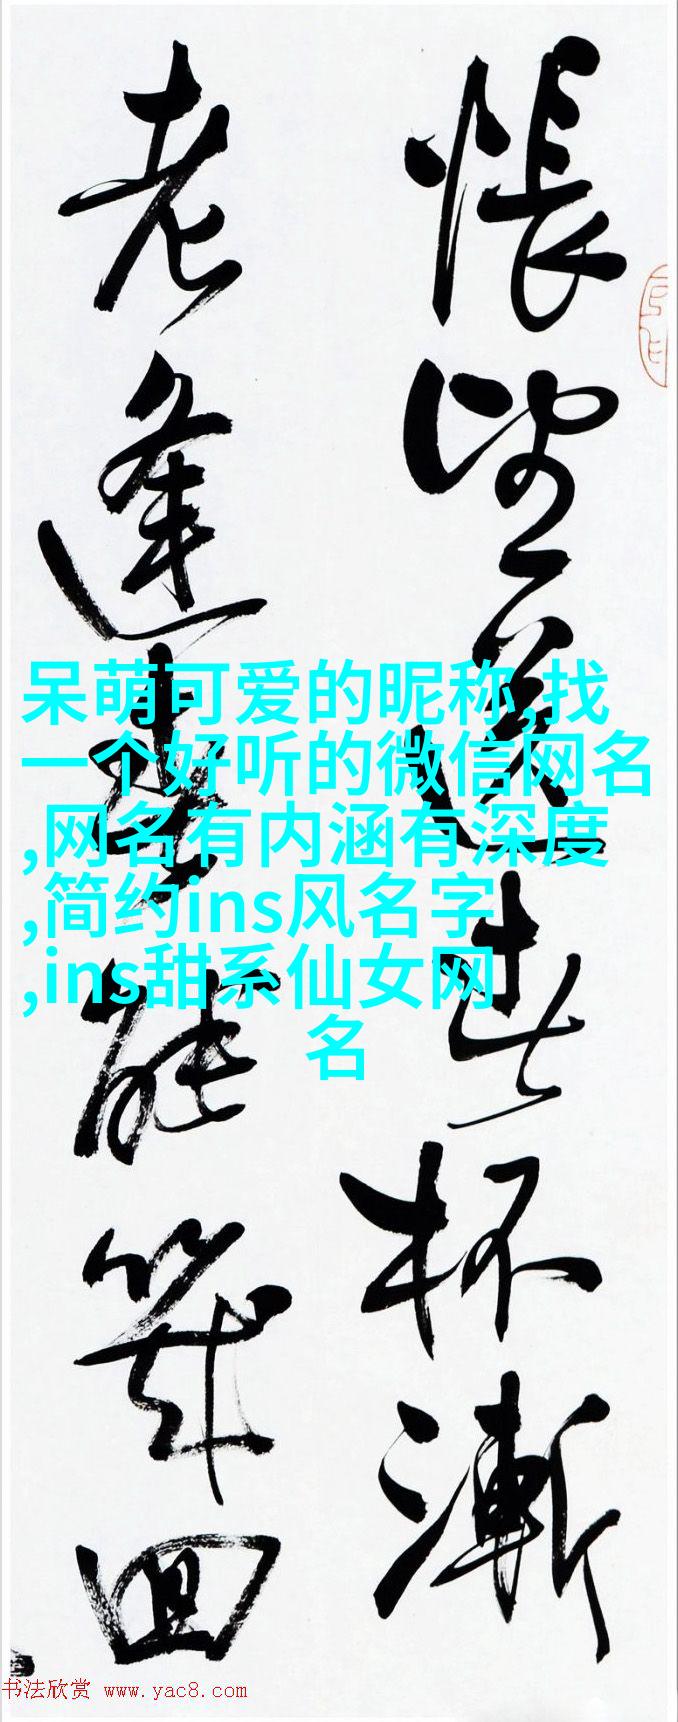 悵望送春杯漸
老逢春能幾回
呆萌可爱的昵称,找
一个好听的微信网名
,网名有内涵有深度
,简约ins风名字
,ins甜系仙女网
名
书法欣赏 www.yac8.com